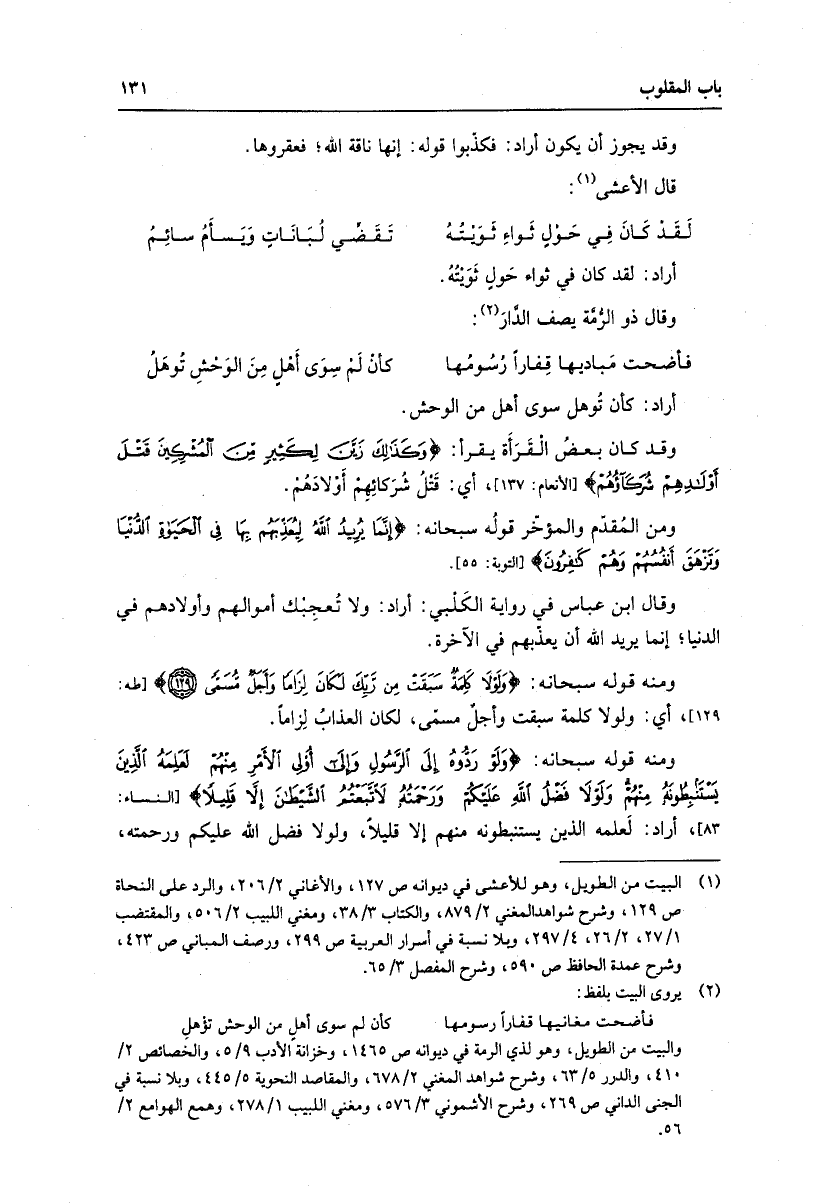 باب المقلوب ١٣١
وقد يجوز أن يكون أراد: فكذّبوا قوله: إنها ناقة الله؛ فعقروها.
قال الأعشى(١):
لَقَدْ كَانَ فِي حَوْلٍ ثَواءِ ثَوَيْتُهُ تَقَضِّي لُبَانَاتٍ وَيَسأَمُ سائِمُ
أراد: لقد كان في ثواء حَولٍ ثَوَيْتُهُ.
وقال ذو الرُّمَّة يصف الدَّارَ(٢):
فأضحت مَباديها قِفاراً رُسُومُها كأنْ لَمْ سِوَى أَهْلٍ مِنَ الوَحْشِ تُوهَلُ
أراد: كأن تُوهل سوى أهل من الوحش.
وقد كان بعضُ الْقَرَأَة يقرأ: ﴿وَكَذَٰلِكَ زَيَّنَ لِكَثِيرٍ مِّنَ ٱلْمُشْرِكِينَ قَتْلَ
أَوْلَٰدِهِمْ شُرَكَآؤُهُمْ﴾ [الأنعام: ١٣٧]، أي: قَتْلُ شُرَكائِهِمْ أَوْلادَهُمْ.
ومن المُقدّم والمؤخّر قولُه سبحانه: ﴿إِنَّمَا يُرِيدُ ٱللَّهُ لِيُعَذِّبَهُم بِهَا فِى ٱلْحَيَوٰةِ ٱلدُّنْيَا
وَتَزْهَقَ أَنفُسُهُمْ وَهُمْ كَٰفِرُونَ﴾ [التوبة: ٥٥].
وقال ابن عباس في رواية الكَلْبي: أراد: ولا تُعجِبْك أموالهم وأولادهم في
الدنيا؛ إنما يريد الله أن يعذّبهم في الآخرة.
ومنه قوله سبحانه: ﴿وَلَوْلَا كَلِمَةٌ سَبَقَتْ مِن رَّبِّكَ لَكَانَ لِزَامًا وَأَجَلٌ مُّسَمًّى ١٢٩﴾ [طه:
١٢٩]، أي: ولولا كلمة سبقت وأجلٌ مسمّى، لكان العذابُ لِزاماً.
ومنه قوله سبحانه: ﴿وَلَوْ رَدُّوهُ إِلَى ٱلرَّسُولِ وَإِلَىٰٓ أُو۟لِى ٱلْأَمْرِ مِنْهُمْ لَعَلِمَهُ ٱلَّذِينَ
يَسْتَنۢبِطُونَهُۥ مِنْهُمْ وَلَوْلَا فَضْلُ ٱللَّهِ عَلَيْكُمْ وَرَحْمَتُهُۥ لَٱتَّبَعْتُمُ ٱلشَّيْطَٰنَ إِلَّا قَلِيلًا﴾ [النساء:
٨٣]، أراد: لَعلمه الذين يستنبطونه منهم إلا قليلاً، ولولا فضل الله عليكم ورحمته،
(١) البيت من الطويل، وهو للأعشى في ديوانه ص ١٢٧، والأغاني ٢/ ٢٠٦، والرد على النحاة
ص ١٢٩، وشرح شواهدالمغني ٢/ ٨٧٩، والكتاب ٣/ ٣٨، ومغني اللبيب ٢/ ٥٠٦، والمقتضب
١/ ٢٧، ٢/ ٢٦، ٤/ ٢٩٧، وبلا نسبة في أسرار العربية ص ٢٩٩، ورصف المباني ص ٤٢٣،
وشرح عمدة الحافظ ص ٥٩٠، وشرح المفصل ٣/ ٦٥.
(٢) يروى البيت بلفظ:
فأضحت مغانيها قفاراً رسومها كأن لم سوى أهلٍ من الوحش تؤهلِ
والبيت من الطويل، وهو لذي الرمة في ديوانه ص ١٤٦٥، وخزانة الأدب ٩/ ٥، والخصائص ٢/
٤١٠، والدرر ٥/ ٦٣، وشرح شواهد المغني ٢/ ٦٧٨، والمقاصد النحوية ٥/ ٤٤٥، وبلا نسبة في
الجنى الداني ص ٢٦٩، وشرح الأشموني ٣/ ٥٧٦، ومغني اللبيب ١/ ٢٧٨، وهمع الهوامع ٢/
٥٦.